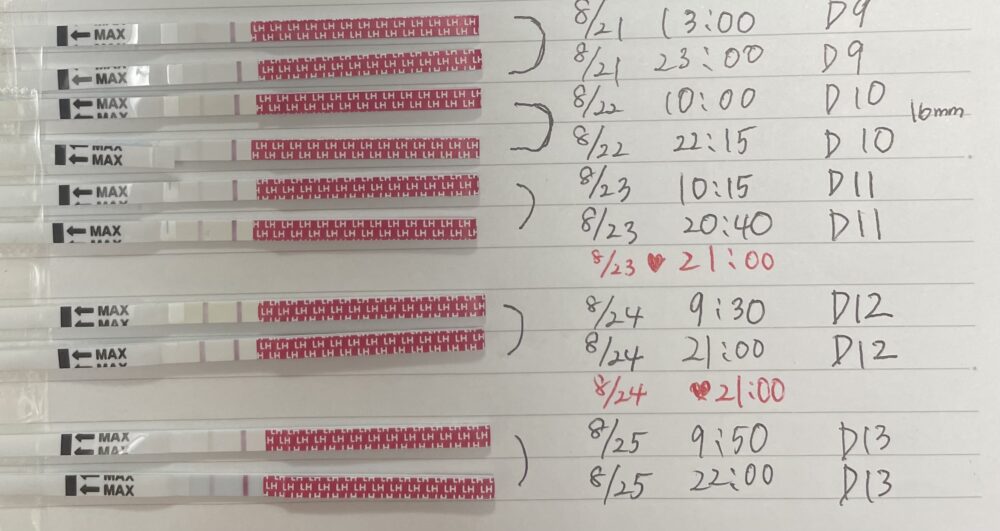 ← MAX LH LH LH LH LH LH LH LH LH LH LH 8/21 13:00 D9
← MAX LH LH LH LH LH LH LH LH LH LH LH 8/21 23:00 D9
← MAX LH LH LH LH LH LH LH LH LH LH LH 8/22 10:00 D10
16mm
← MAX LH LH LH LH LH LH LH LH LH LH LH 8/22 22:15 D10
← MAX LH LH LH LH LH LH LH LH LH LH LH 8/23 10:15 D11
← MAX LH LH LH LH LH LH LH LH LH LH LH 8/23 20:40 D11
8/23 ♥ 21:00
← MAX LH LH LH LH LH LH LH LH LH LH LH 8/24 9:30 D12
← MAX LH LH LH LH LH LH LH LH LH LH LH 8/24 21:00 D12
8/24 ♥ 21:00
← MAX LH LH LH LH LH LH LH LH LH LH LH 8/25 9:50 D13
← MAX LH LH LH LH LH LH LH LH LH LH LH 8/25 22:00 D13